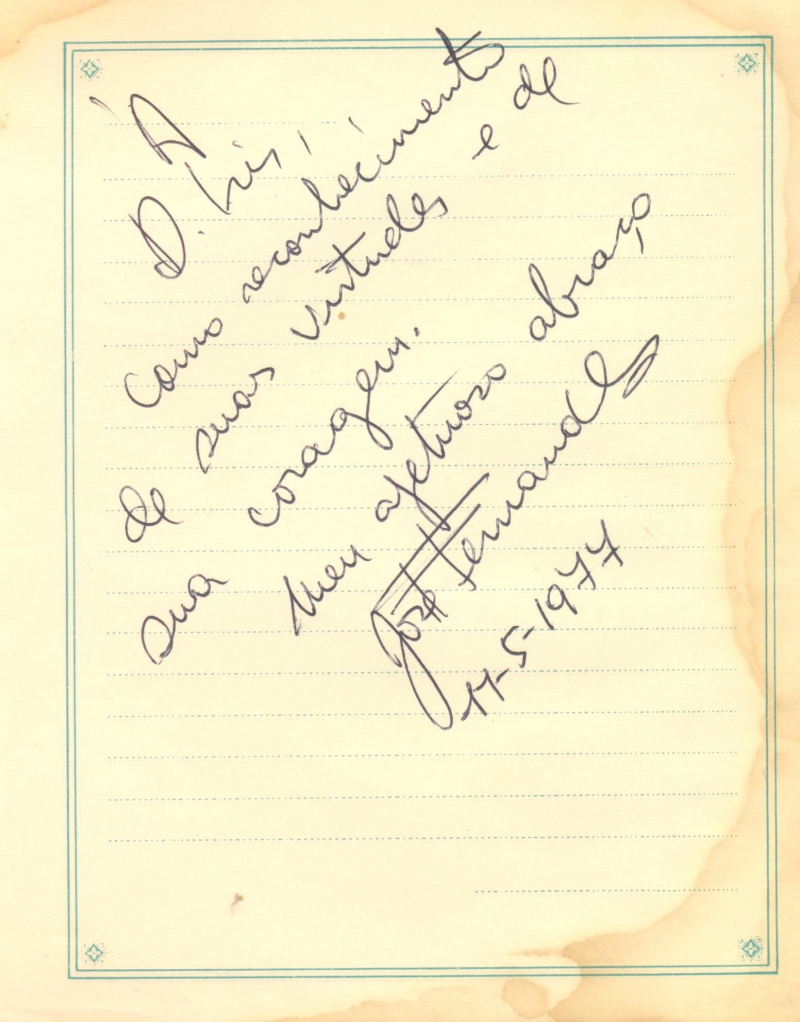 À
D. Iris,
como reconhecimento
de suas virtudes e de
sua coragem.
Meu afetuoso abraço,
José Fernandes
17-5-1977